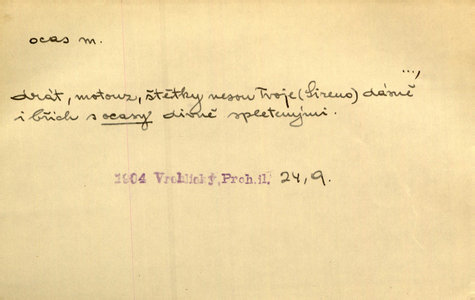 ocas m.
...,
drát, motouz, štětky nesou Tvoje (Sireno) dásně
i břich s ocasy divně spletenými.
1904 Vrchlický, Proh.il. 24, 9.